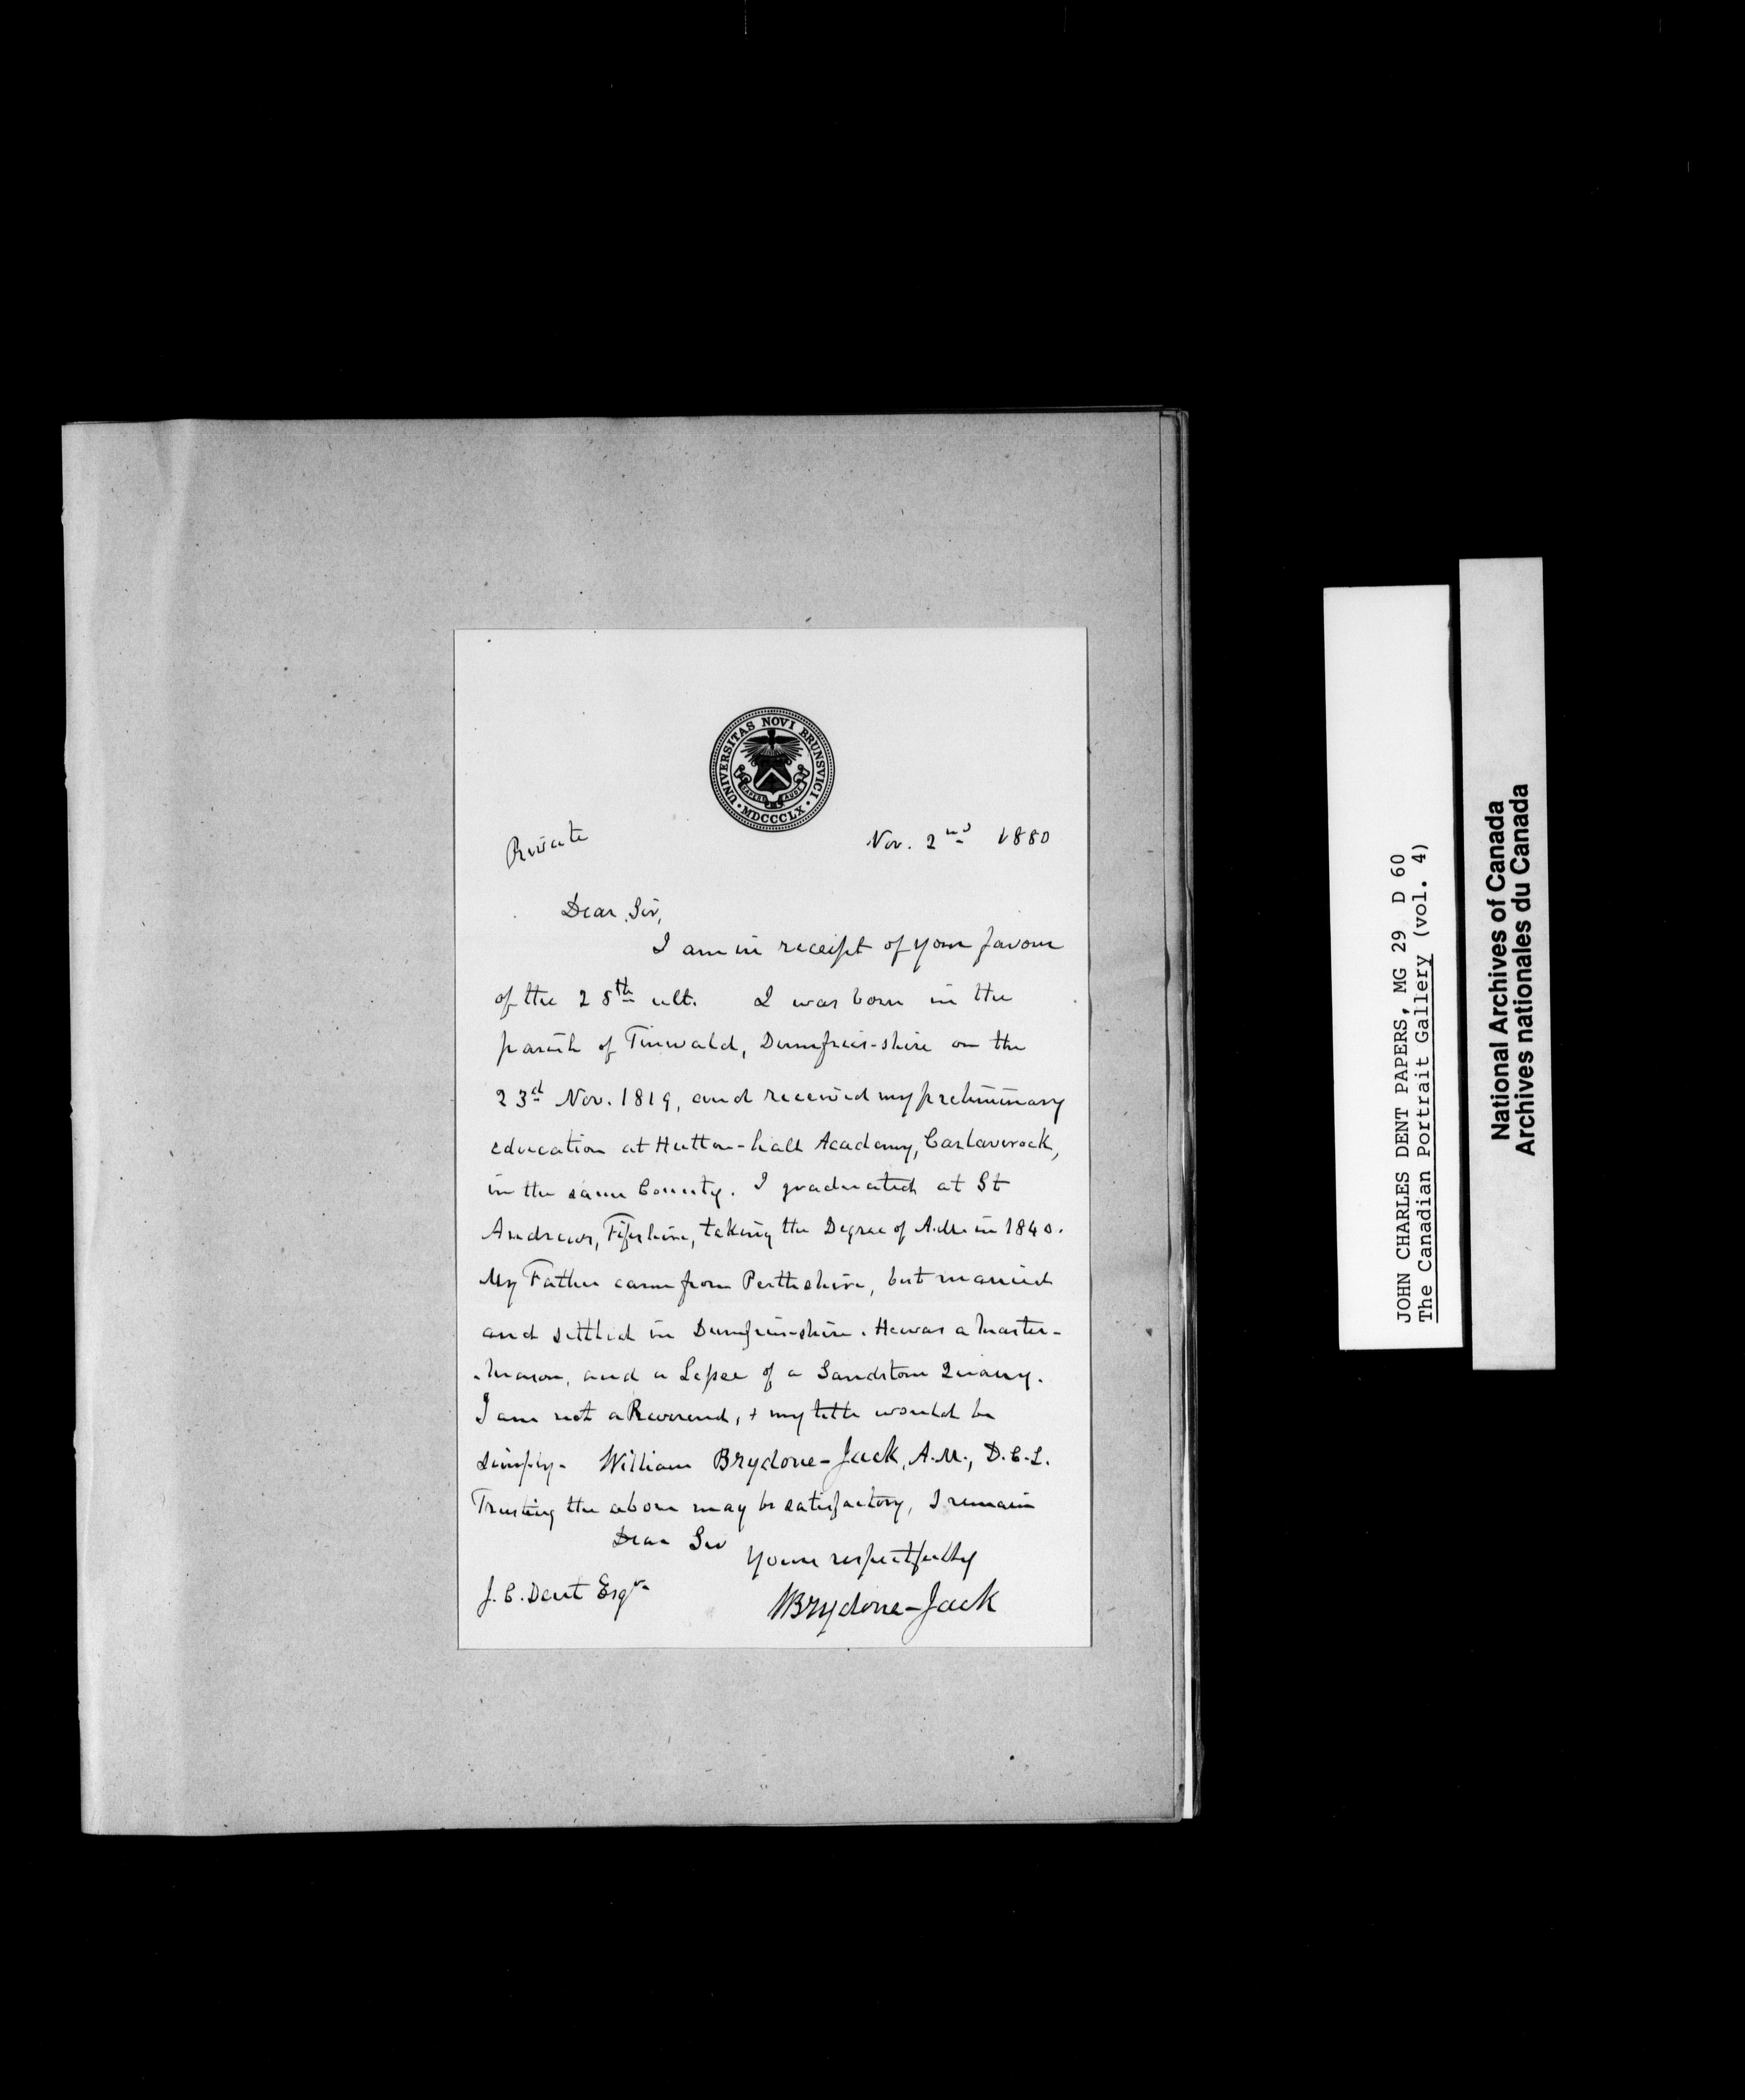 UNIVERSITAS NOVI BRUNSVICI · MDCCCLX ·
SAPERE AUDE
Private
Nov. 2nd 1880
Dear Sir,
I am in receipt of your favour
of the 28th ult. I was born in the
parish of Tinwald, Dumfries-shire on the
23rd Nov. 1819, and received my preliminary
education at Hutton-hall Academy, Carlaverock,
in the same County. I graduated at St
Andrews, Fifeshire, taking the Degree of A.M. in 1840.
My Father came from Perthshire, but married
and settled in Dumfries-shire. He was a Master-
-Mason, and a Lessee of a Sandstone Quarry.
I am not a Reverend, + my title would be
simply - William Brydone-Jack, A.M., D.C.L.
Trusting the above may be satisfactory, I remain
Dear Sir
Yours respectfully
J. C. Dent Esqr.
WBrydone-Jack
JOHN CHARLES DENT PAPERS, MG 29 D 60
The Canadian Portrait Gallery (vol. 4)
National Archives of Canada
Archives nationales du Canada